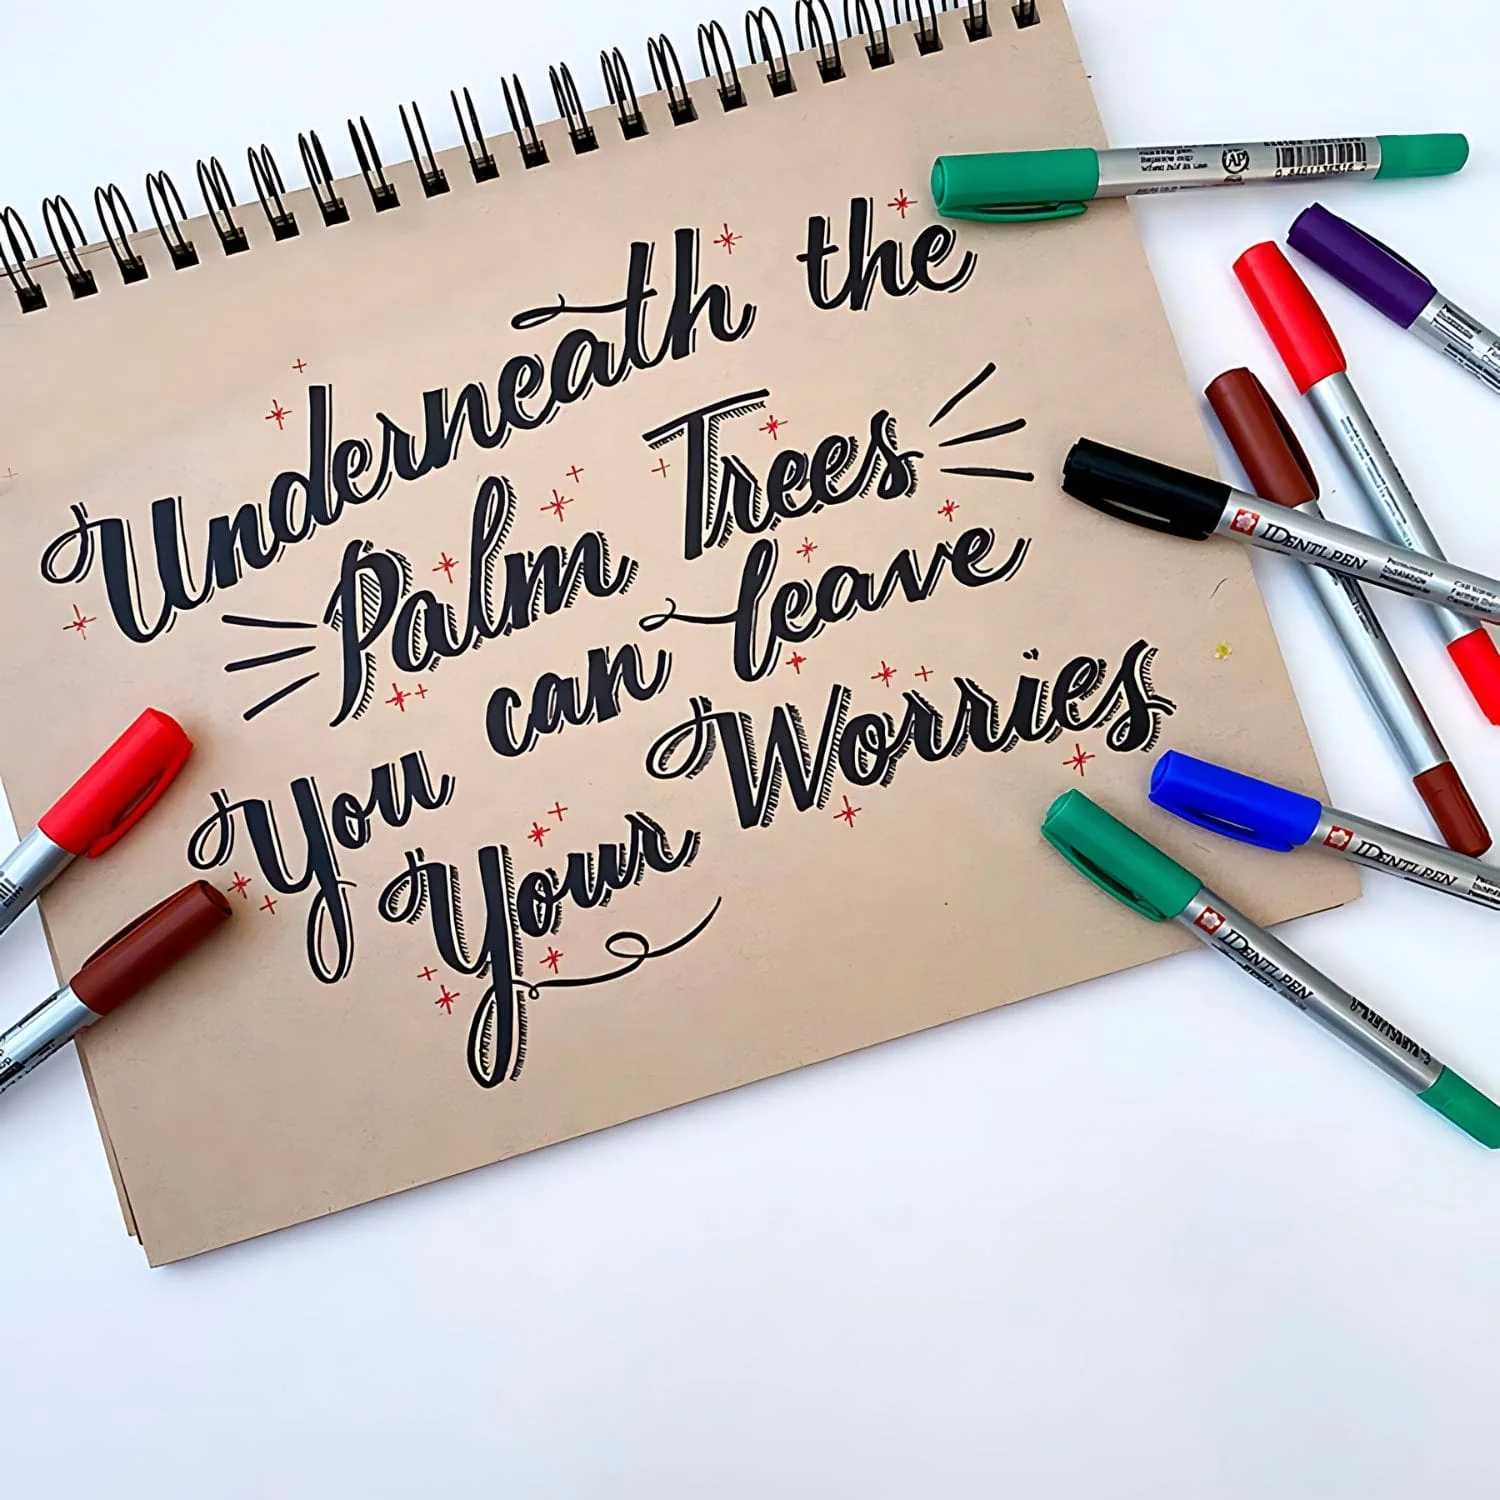 Underneath the
Palm Trees
You can leave
Your Worries
AP
IDENTI.PEN
IDENTI.PEN
IDENTI.PEN